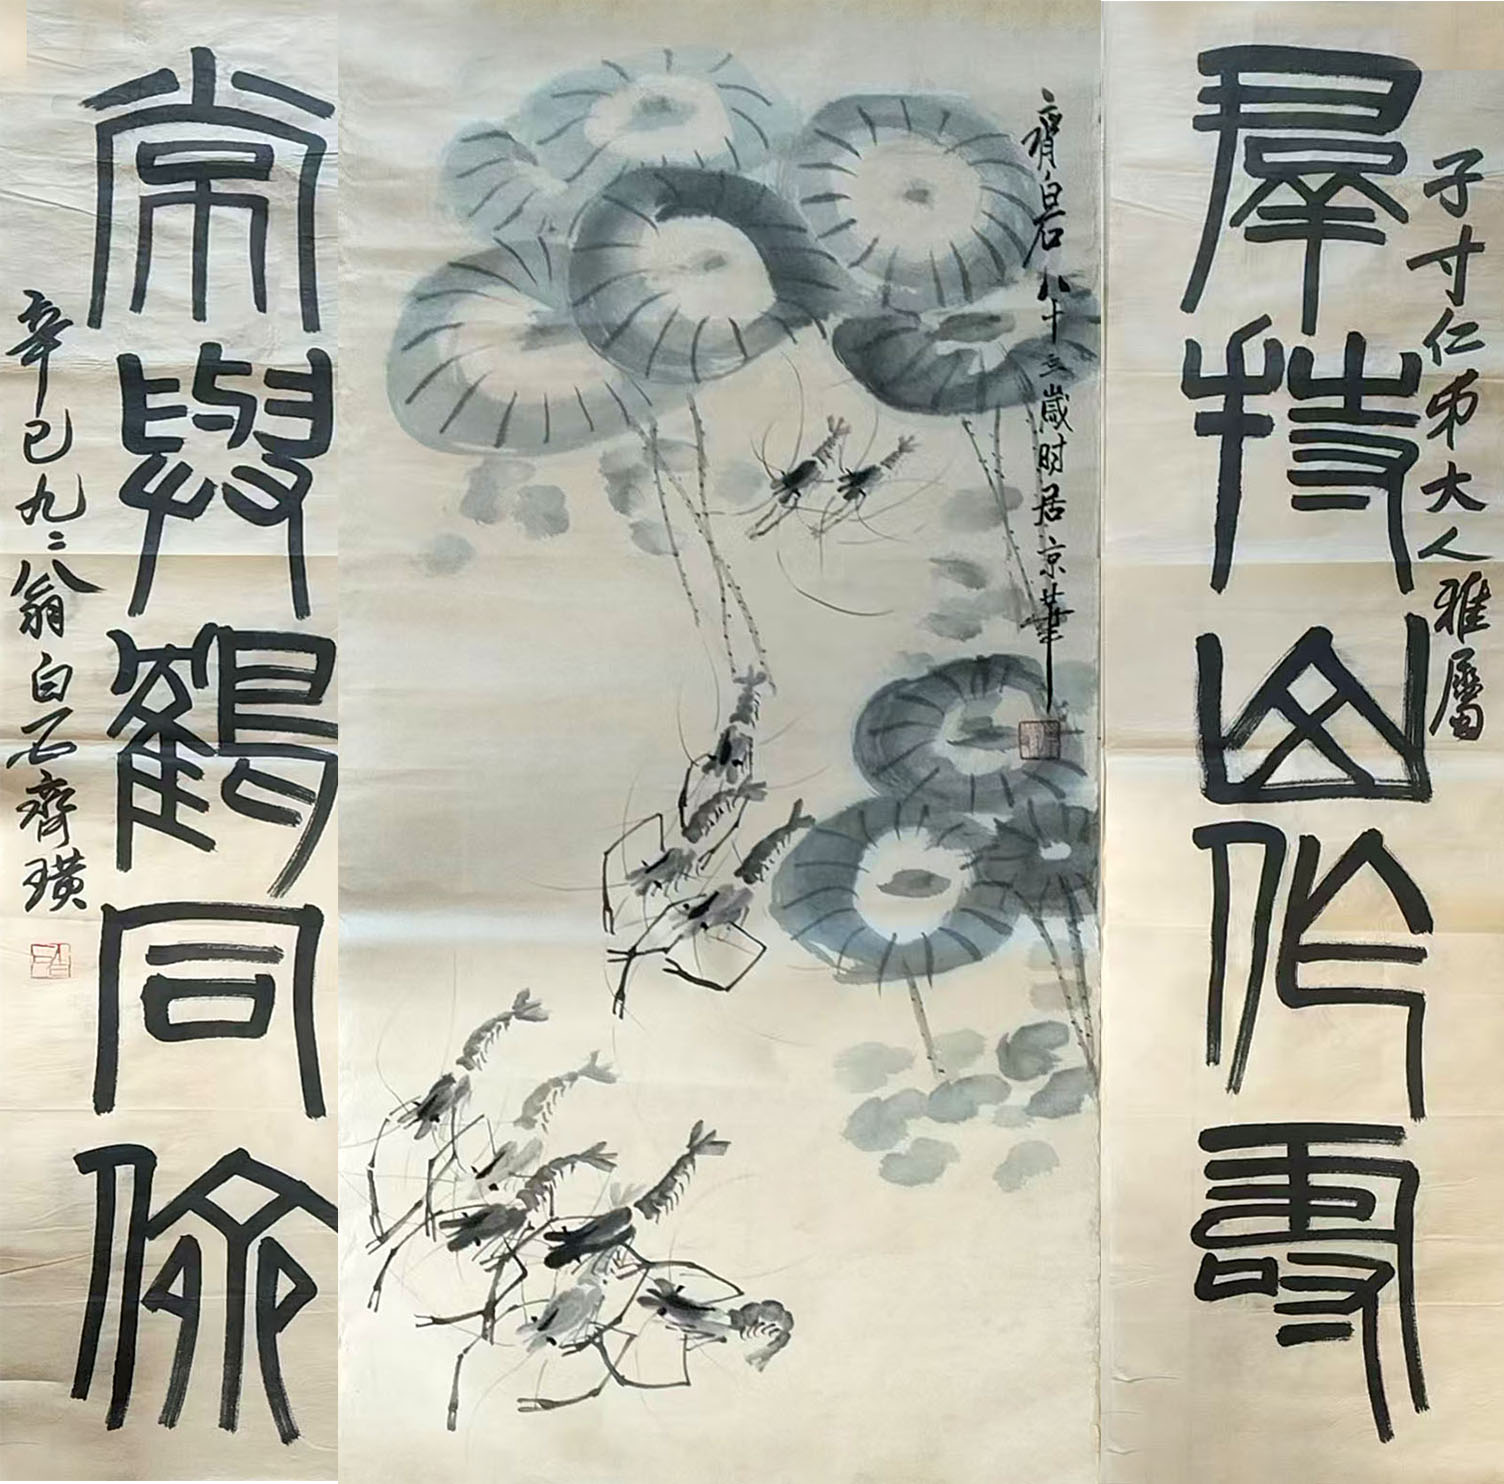 子寸仁弟大人雅屬
羣持山作壽
齊白石八十三歲时居京華
常與鶴同儕
辛巳九二翁白石齊璜